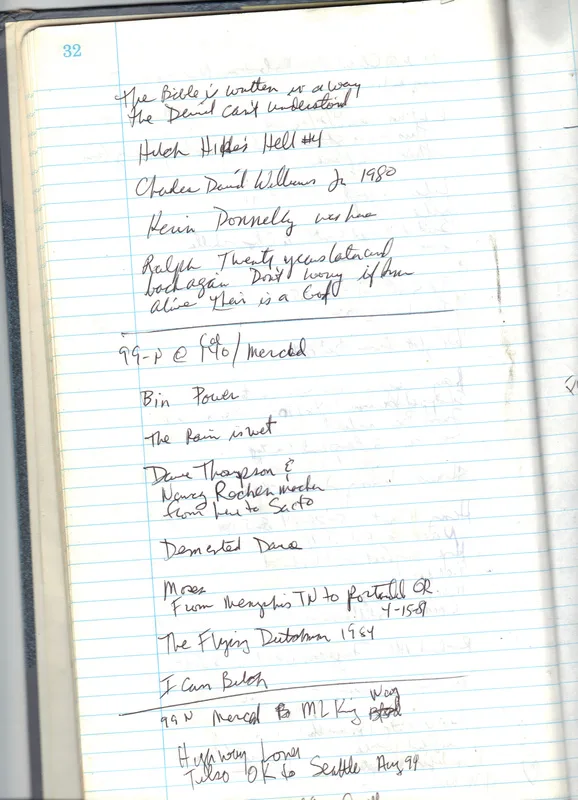 32
The Bible is written in a way
the Devil can't understand
Hitch Hike's Hell #4
Charles David Williams Jr 1980
Kevin Donnelly was here
Ralph Twenty years later and
back again Don't worry if I'm
alive their is a God
99-N @ /Merced
Bin Power
The Rain is wet
Dave Thompson &
Nancy
from here to Sacto
Demented Dave
Moses
From Memphis TN to Portland OR.
4-15-89
The Flying Dutchman 1984
I Can Belch
99N Merced @ ML King Way
Highway Lover
Tulsa OK to Seattle Aug 99